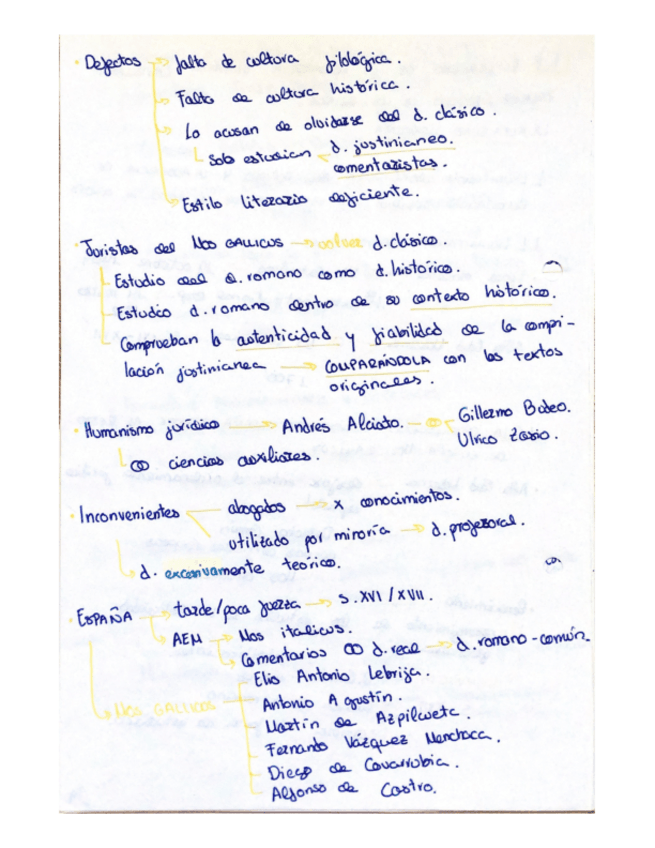 · Defectos → falta de cultura filológica.
→ Falta de cultura histórica.
→ Lo acusan de olvidarse del d. clásico.
Solo estudian d. justinianeo.
comentaristas.
→ Estilo literario deficiente.
· Juristas del Mos GALLICUS → volver d. clásico.
Estudio del d. romano como d. histórico.
Estudio d. romano dentro de su contexto histórico.
Comprueban la autenticidad y fiabilidad de la compi-
lación justinianea → COMPARÁNDOLA con los textos
originales.
· Humanismo jurídico → Andrés Alciato. → Gillermo Budeo.
Ulrico Zasio.
ciencias auxiliares.
· Inconvenientes abogados → x conocimientos.
utilizado por minoría → d. profesoral.
→ d. excesivamente teórico.
· ESPAÑA → tarde/poca fuerza → s. XVI / XVII.
→ AEM → Mos italicus.
→ Comentarios d. real → d. romano-común.
→ MOS GALLICUS Elio Antonio Lebrija.
Antonio Agustín.
Martín de Azpilcueta.
Fernando Vázquez Menchaca.
Diego de Covarrubia.
Alfonso de Castro.